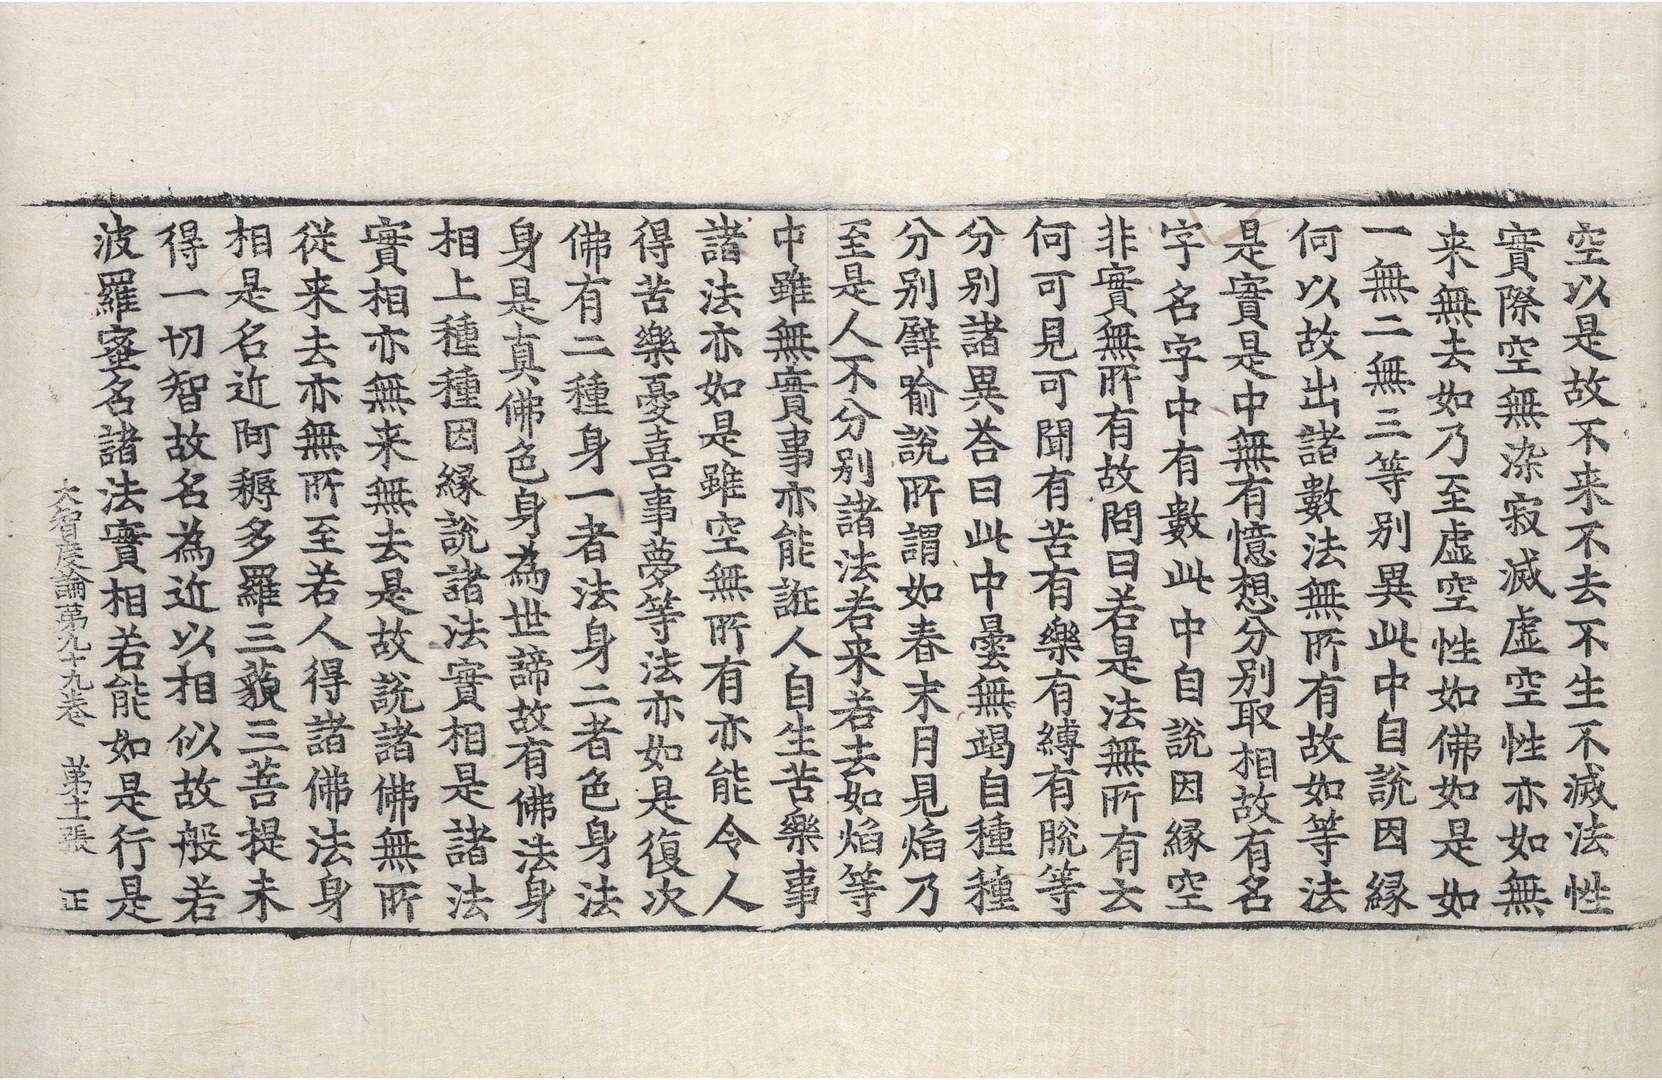 空以是故不来不去不生不滅法性
實際空無染寂滅虛空性亦如無
来無去如乃至虛空性如佛如是如
一無二無三等別異此中自說因緣
何以故出諸數法無所有故如等法
是實是中無有憶想分別取相故有名
字名字中有數此中自說因緣空
非實無所有故問曰若是法無所有云
何可見可聞有苦有樂有縛有脫等
分別諸異荅曰此中曇無竭自種種
分別譬喻說所謂如春末月見焰乃
至是人不分別諸法若来若去如焰等
中雖無實事亦能誑人自生苦樂事
諸法亦如是雖空無所有亦能令人
得苦樂憂喜事夢等法亦如是復次
佛有二種身一者法身二者色身法
身是真佛色身為世諦故有佛法身
相上種種因緣說諸法實相是諸法
實相亦無来無去是故說諸佛無所
從来去亦無所至若人得諸佛法身
相是名近阿耨多羅三藐三菩提未
得一切智故名為近以相似故般若
波羅蜜名諸法實相若能如是行是
大智度論第九十九卷 第十一張 正